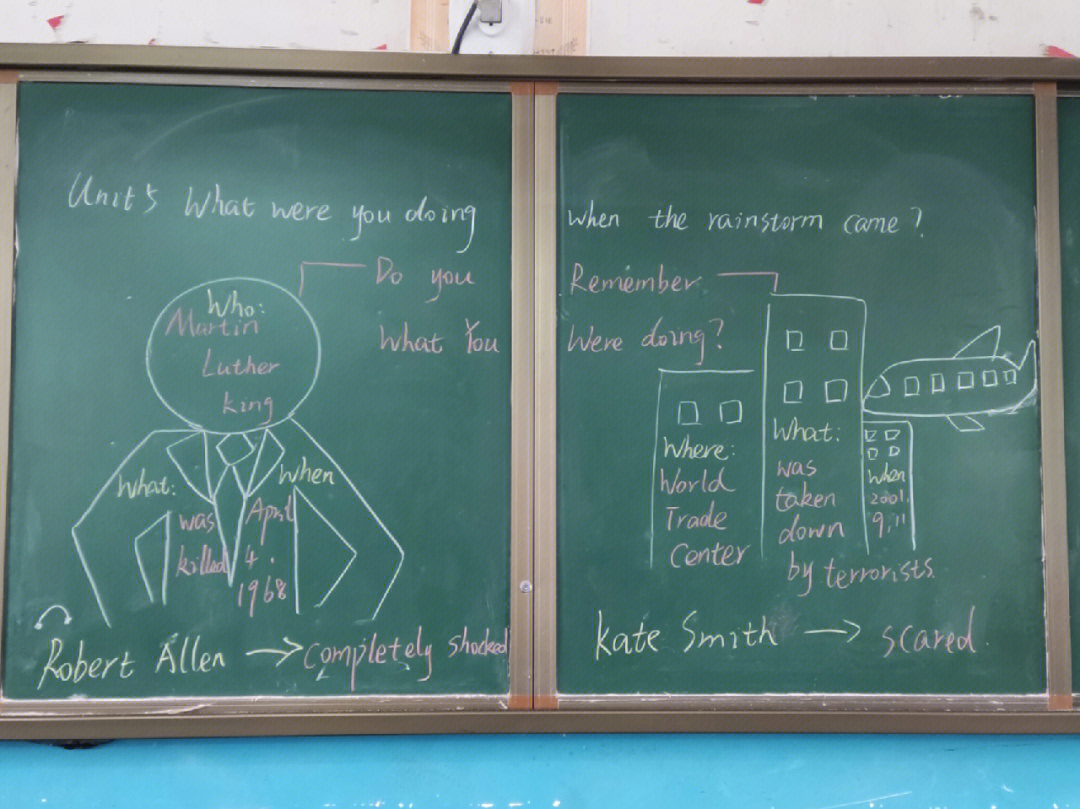 Unit 5 What were you doing when the rainstorm came?
Do you Remember
What You Were doing?
Who:
Martin
Luther
King
What:
was
killed
When
April
4.
1968
Robert Allen → completely shocked
Where:
World
Trade
Center
What:
was
taken
down
by terrorists.
When
2001.
9.11
Kate Smith → scared.